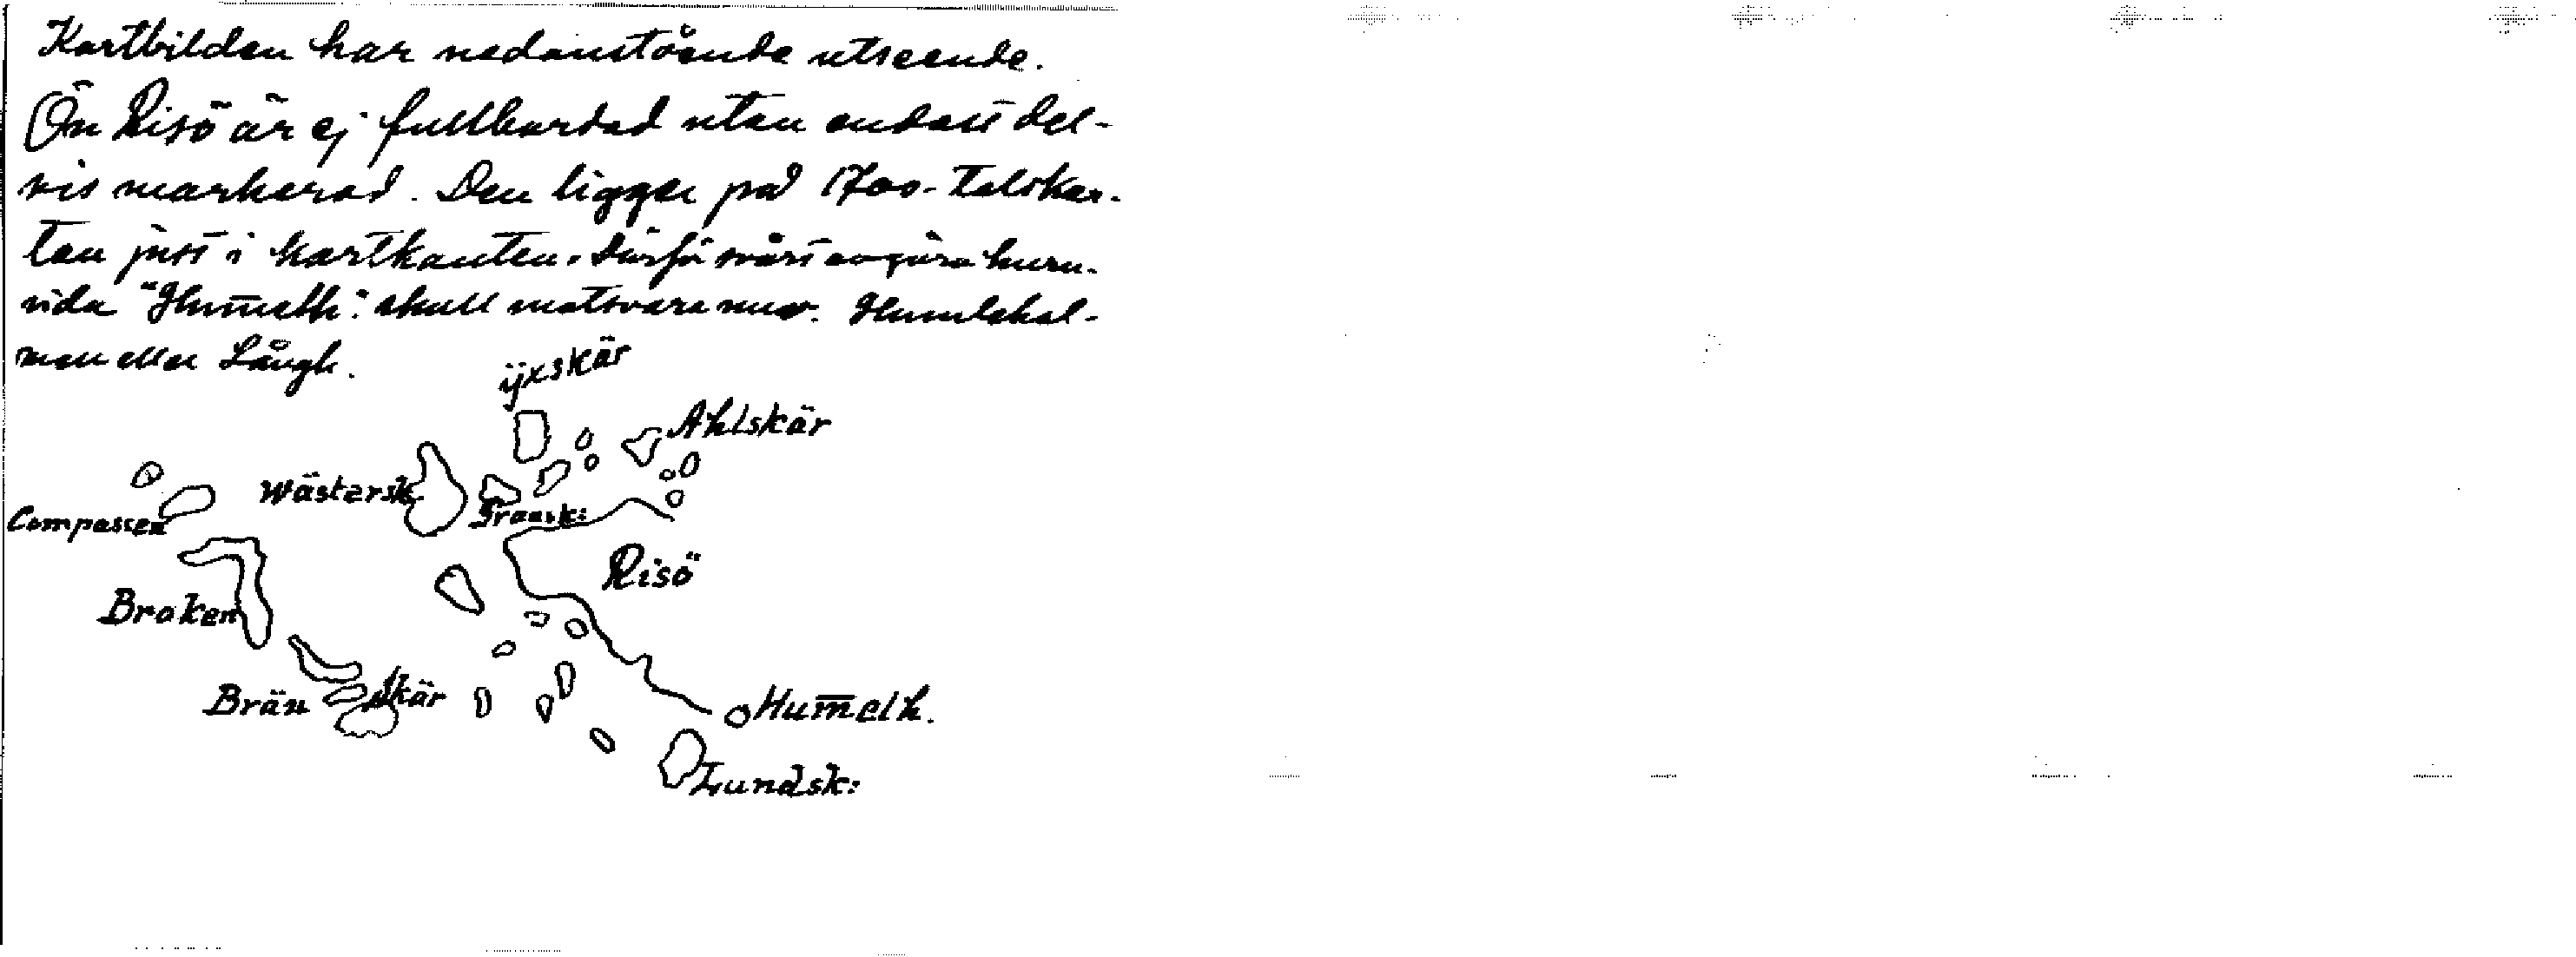 Kartbilden har nedanstående utseende.
Ön Risö är ej fullbordad utan endast del-
vis markerad. Den ligger på 1700-talskar-
tan just i kartkanten. Därför svårt avgöra huru-
vida "Hum̅elh:" skall motsvara nuv. Humlehol-
men eller Långh.
ÿxskär
Ahlskär
Wästersk
Graansk:
Compassen
Risö
Broken
Brän skär
Hum̅elh.
Lundsk: